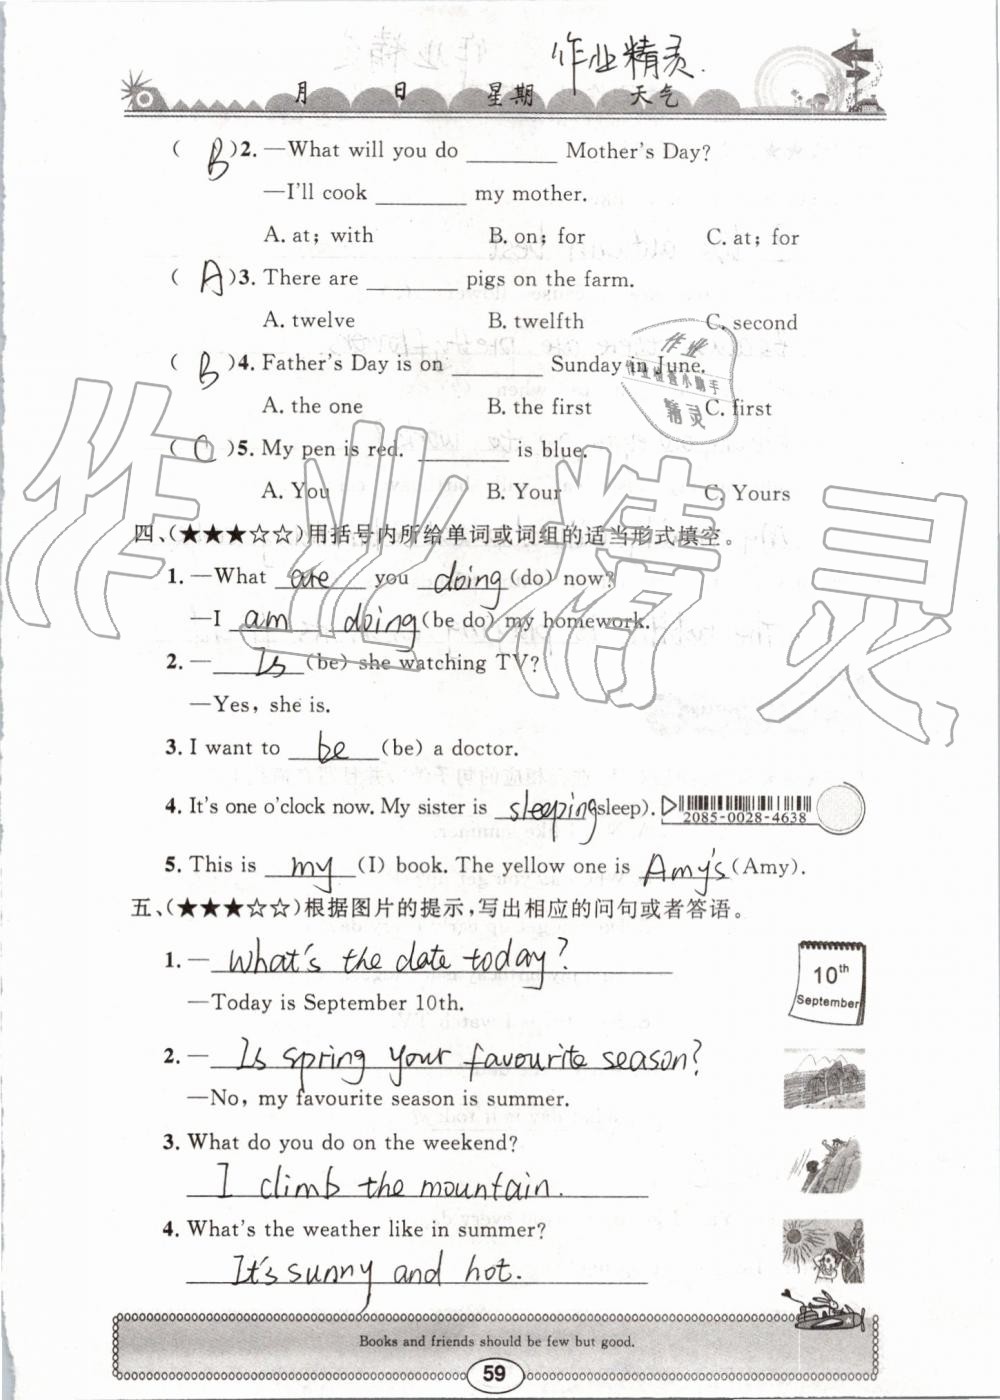 作业精灵.
月 日 星期 天气
( B )2. —What will you do ________ Mother's Day?
—I'll cook ________ my mother.
A. at; with B. on; for C. at; for
( A )3. There are ________ pigs on the farm.
A. twelve B. twelfth C. second
( B )4. Father's Day is on ________ Sunday in June.
A. the one B. the first C. first
( C )5. My pen is red. ________ is blue.
A. You B. Your C. Yours
四、(★★★☆☆)用括号内所给单词或词组的适当形式填空。
1. —What are you doing (do) now?
—I am doing (be do) my homework.
2. — Is (be) she watching TV?
—Yes, she is.
3. I want to be (be) a doctor.
4. It's one o'clock now. My sister is sleeping (sleep).
2085-0028-4638
5. This is my (I) book. The yellow one is Amy's (Amy).
五、(★★★☆☆)根据图片的提示,写出相应的问句或者答语。
1. — What's the date today?
10th
September
—Today is September 10th.
2. — Is spring your favourite season?
—No, my favourite season is summer.
3. What do you do on the weekend?
I climb the mountain.
4. What's the weather like in summer?
It's sunny and hot.
Books and friends should be few but good.
59
作业
作业检查小助手
精灵
作业精灵